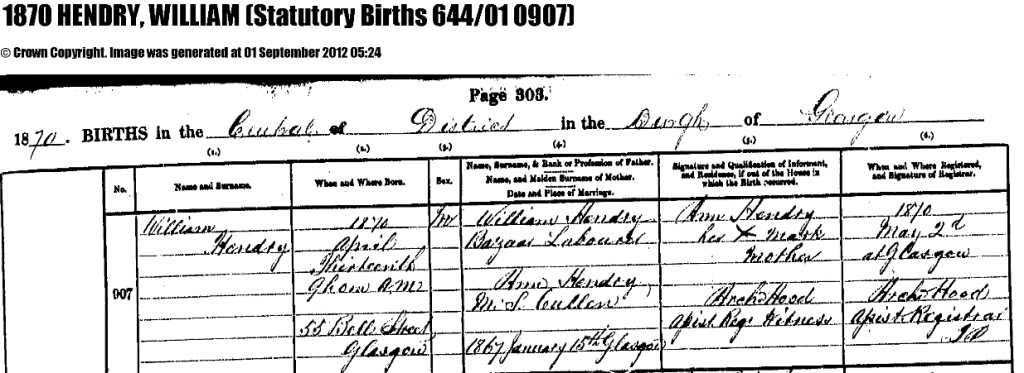 1870 HENDRY, WILLIAM (Statutory Births 644/01 0907)
© Crown Copyright. Image was generated at 01 September 2012 05:24
Page 303.
1870. BIRTHS in the Central District in the Burgh of Glasgow
(1.) (2.) (3.) (4.) (5.) (6.)
No.
Name and Surname.
When and Where Born.
Sex.
Name, Surname, & Rank or Profession of Father.
Name, and Maiden Surname of Mother.
Date and Place of Marriage.
Signature and Qualification of Informant,
and Residence, if out of the House in
which the Birth occurred.
When and Where Registered,
and Signature of Registrar.
907
William
Hendry
1870
April
Thirteenth
A M
55 Bell Street
Glasgow
M
William Hendry
Bazaar Labourer
Ann Hendry,
M.S. Cullen
1867 January 15th Glasgow
Ann Hendry
her X mark
mother
Archd Hood
Assist Regr Witness
1870
May 2d
at Glasgow
Archd Hood
Assist Registrar